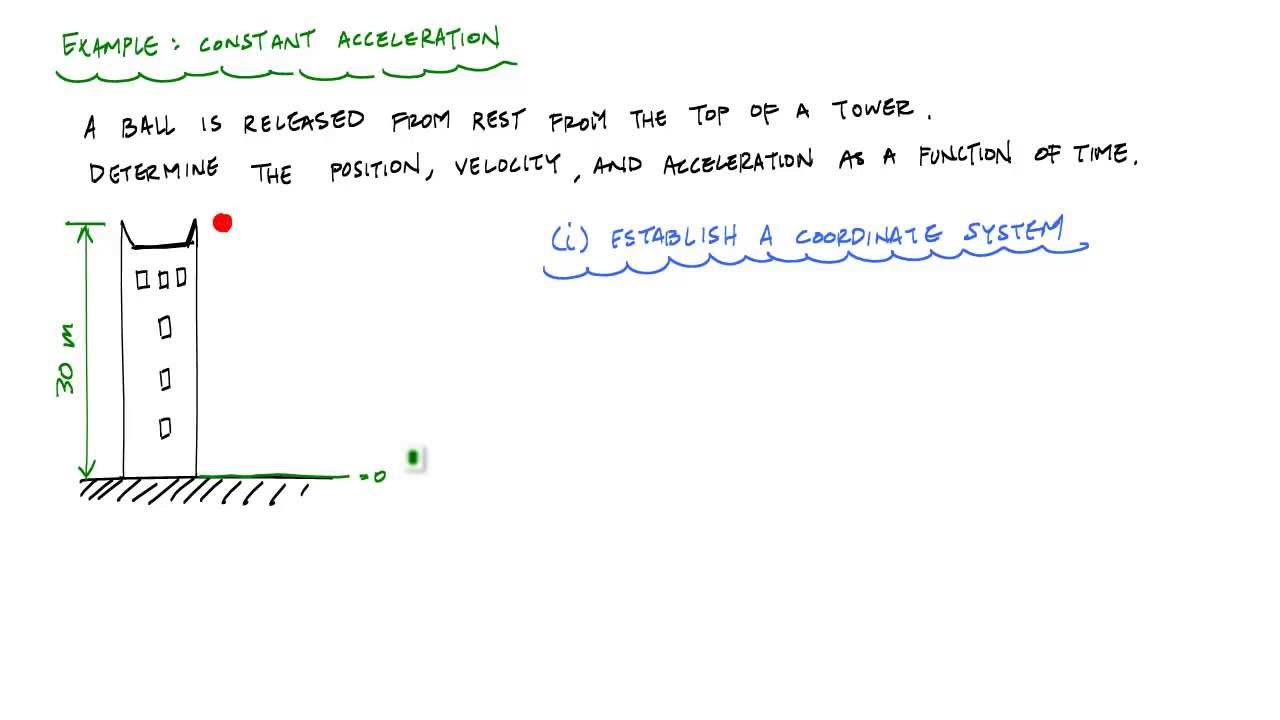 EXAMPLE: CONSTANT ACCELERATION
A BALL IS RELEASED FROM REST FROM THE TOP OF A TOWER.
DETERMINE THE POSITION, VELOCITY, AND ACCELERATION AS A FUNCTION OF TIME.
(i) ESTABLISH A COORDINATE SYSTEM
30 m
=0